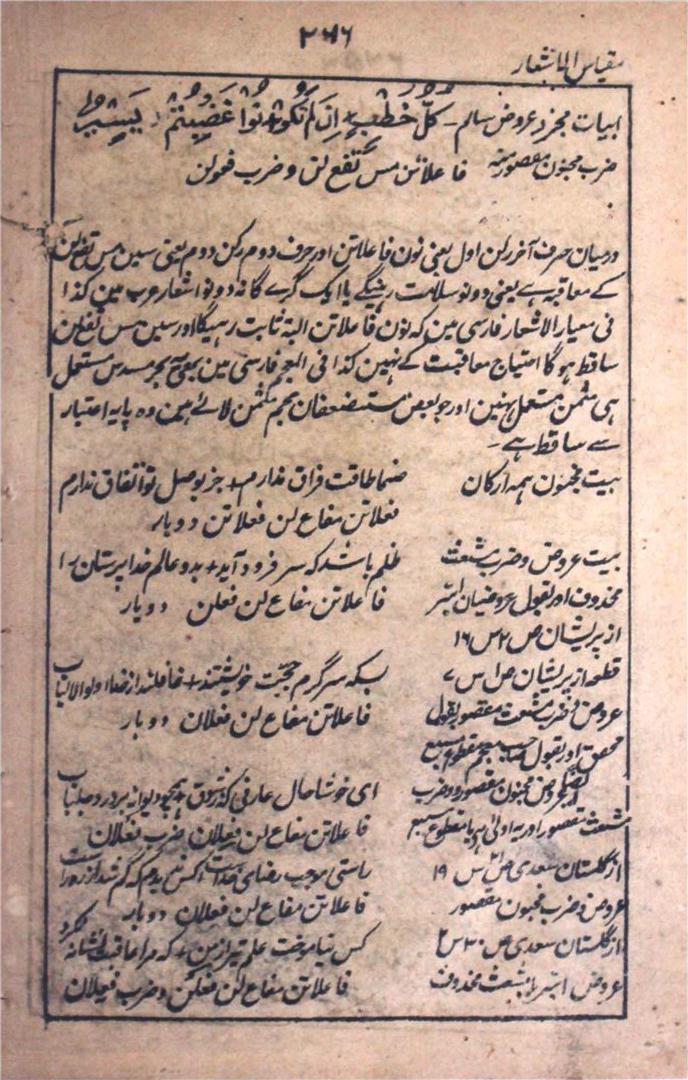 ۲۷۶
مقیاس الاشعار
ابیات مجزو عروض سالم۔ کُلُّ خَطْبٍ اِن لَّم تَکُونُوا غَضِبْتُم یَسِیرُ
ضرب مجنون مقصور منہ فاعلاتن مس تفع لن و ضرب فعولن
درمیان حرف آخر رکن اول یعنی نون فاعلاتن اور حرف دوم رکن دوم یعنی سین مس تفع لن
کے معاقبہ ہے یعنی دونو سلامت رہینگے یا ایک گرے گا نہ دونو اشعار عرب مین کذا
فی معیار الاشعار فارسی مین کہ نون فاعلاتن البتہ ثابت رہیگا اور سین مس تفع لن
ساقط ہوگا احتیاج معاقبت کے نہین کذا فی المعجم فارسی مین بھی یہ بحر مسدس مستعمل
ہی مثمن مستعمل نہین اور جو بعض مستضعفان عجم مثمن لائے ہین وہ پایہ اعتبار
سے ساقط ہے۔
بیت مخبون ہمہ ارکان صنما طاقت فراق ندارم + جز بوصل تو اتفاق ندارم
فعلاتن مفاع لن فعلاتن دوبار
بیت عروض و ضرب مشعث ظلم باشد کہ سر فرود آید + بدو عالم خدا پرستان را
محذوف اور بقول عروضیان ابتر فاعلاتن مفاع لن فعلن دوبار
از پریشان ص ۲ س ۱۶
قطعہ از پریشان ص ۱ س ۷ بسکہ سرگرم حجت خویشتند + غافلند از خدا اولو الالباب
عروض و ضرب مشعث مقصور بقول فاعلاتن مفاع لن فعلان دوبار
محقق اور بقول صاحب معجم مقطوع مسبع
عروض مخبون مقصور و ضرب ای خوشا حال عارفی کہ ز شوق + ہمچو دیوانہ بر درد جلباب
مشعث مقصور اور یہ اولی ہی یا مقطوع مسبع فاعلاتن مفاع لن فعلان ضرب فعلان
از گلستان سعدی ص ۲۱ س ۱۹ راستی موجب رضای خداست + کس ندیدم کہ گم شد از رہ راست
عروض و ضرب مخبون مقصور فاعلاتن مفاع لن فعلان دوبار
از گلستان سعدی ص ۳۰ س ۲ کس نیاموخت علم تیر از من + کہ مرا عاقبت نشانہ نکرد
عروض ابتر یا مشعث محذوف فاعلاتن مفاع لن فعلن و ضرب فعلان